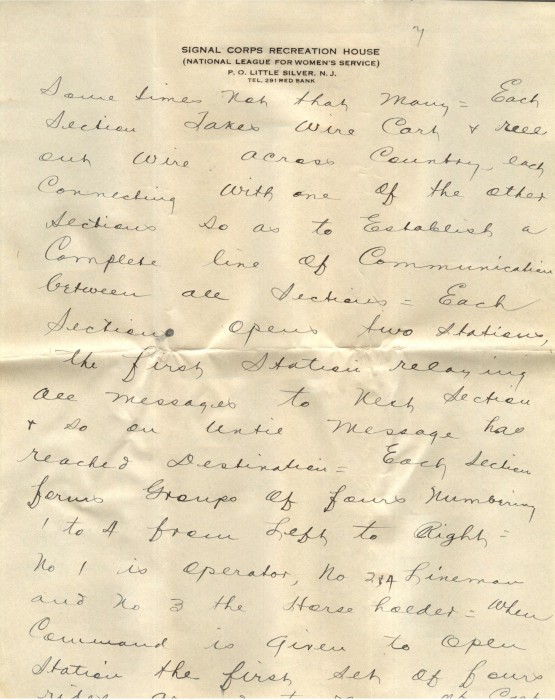 7
SIGNAL CORPS RECREATION HOUSE
(NATIONAL LEAGUE FOR WOMEN'S SERVICE)
P. O. LITTLE SILVER, N. J.
TEL. 291 RED BANK
Some times not that many = Each
Section Takes Wire Cart & reels
out Wire across Country, each
Connecting With one of the other
Sections so as to Establish a
Complete line of Communication
between all Sections = Each
Section opens two stations,
the first Station relaying
all messages to Next Section
& so on until Message has
reached Destination = Each Section
forms Groups of fours Numbering
1 to 4 from Left to Right =
No 1 is operator, No 2 & 4 Lineman
and No 3 the Horse holder = When
Command is Given to Open
Station the first Set of fours
rides